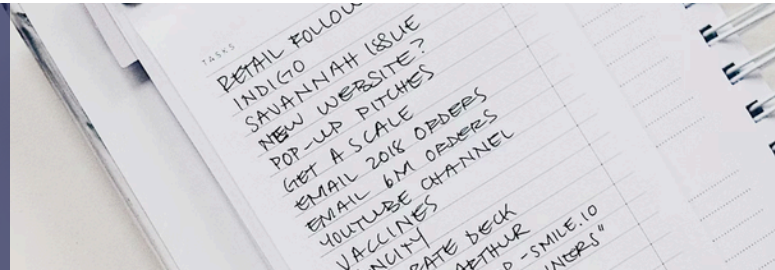 TASKS
RETAIL FOLLOW
INDIGO
SAVANNAH ISSUE
NEW WEBSITE?
POP-UP PITCHES
GET A SCALE
EMAIL 2018 ORDERS
EMAIL 6M ORDERS
YOUTUBE CHANNEL
VACCINES
DECK
ARTHUR
-SMILE.IO